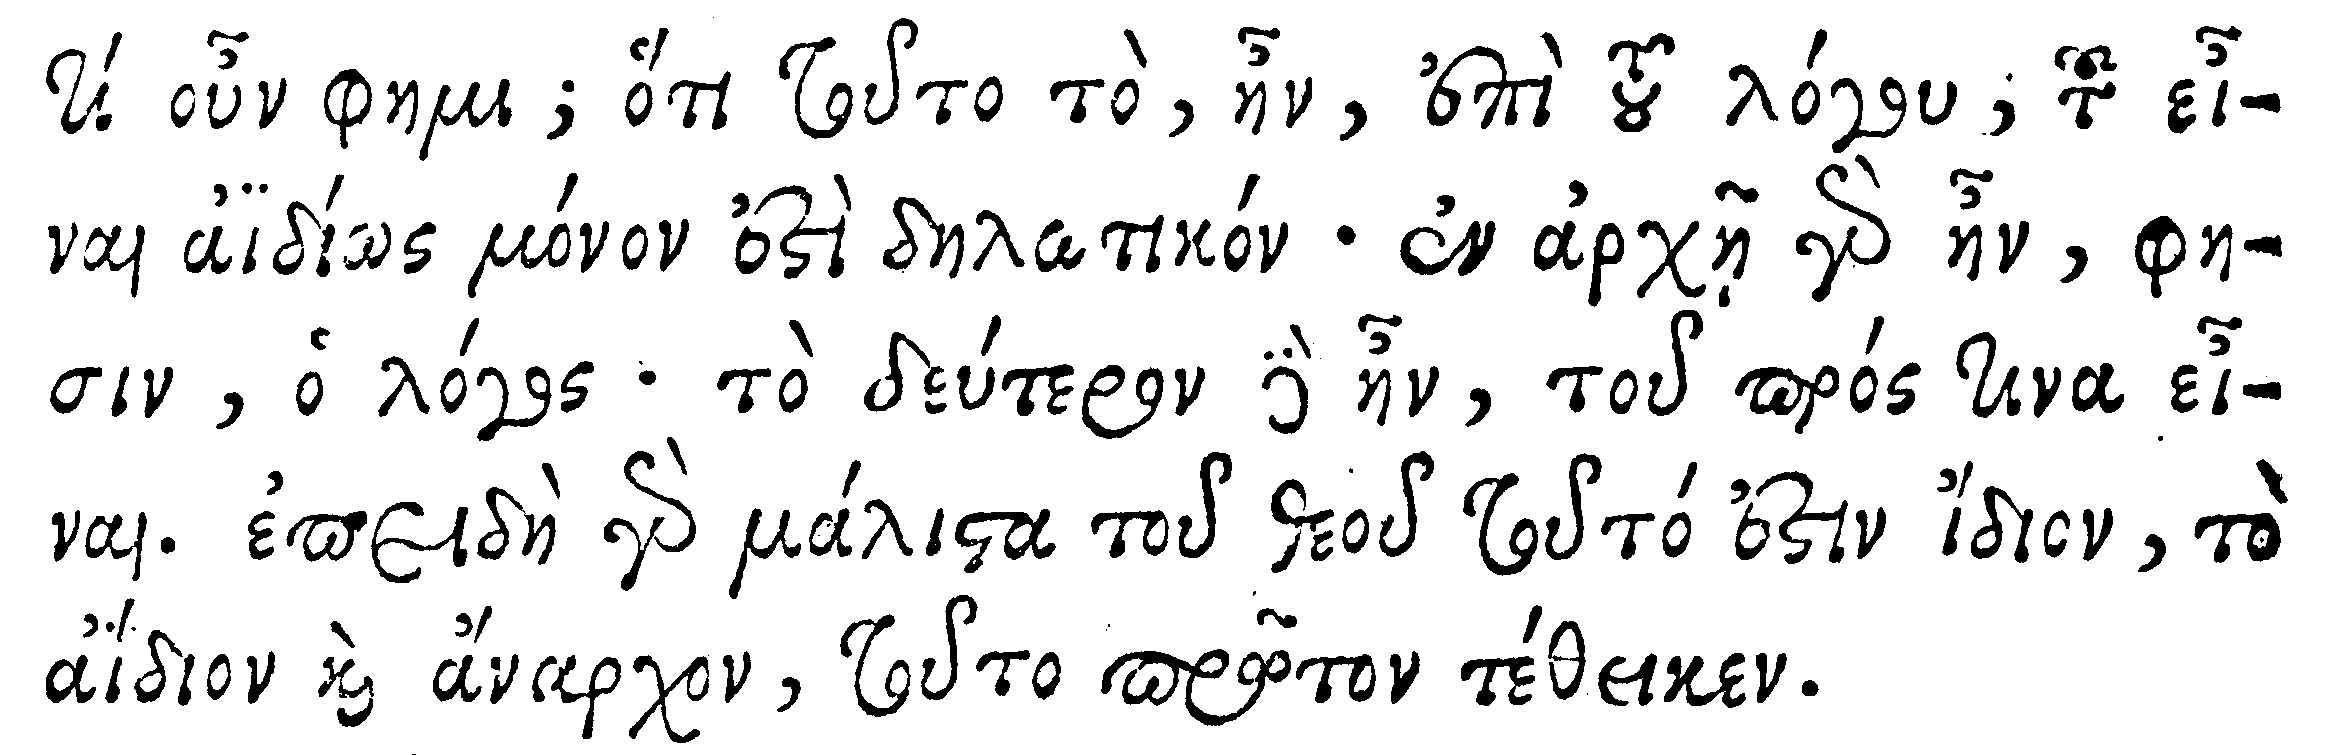 τί οὖν φημι; ὅτι τοῦτο τὸ, ἦν, ἐπὶ τοῦ λόγου, τοῦ εἶ-
ναι ἀϊδίως μόνον ἐστὶ δηλωτικόν· ἐν ἀρχῇ γὰρ ἦν, φη-
σιν, ὁ λόγος· τὸ δεύτερον δὲ ἦν, τοῦ πρός τινα εἶ-
ναι. ἐπειδὴ γὰρ μάλιστα τοῦ θεοῦ τοῦτό ἐστιν ἴδιον, τὸ
ἀΐδιον καὶ ἄναρχον, τοῦτο πρῶτον τέθεικεν.